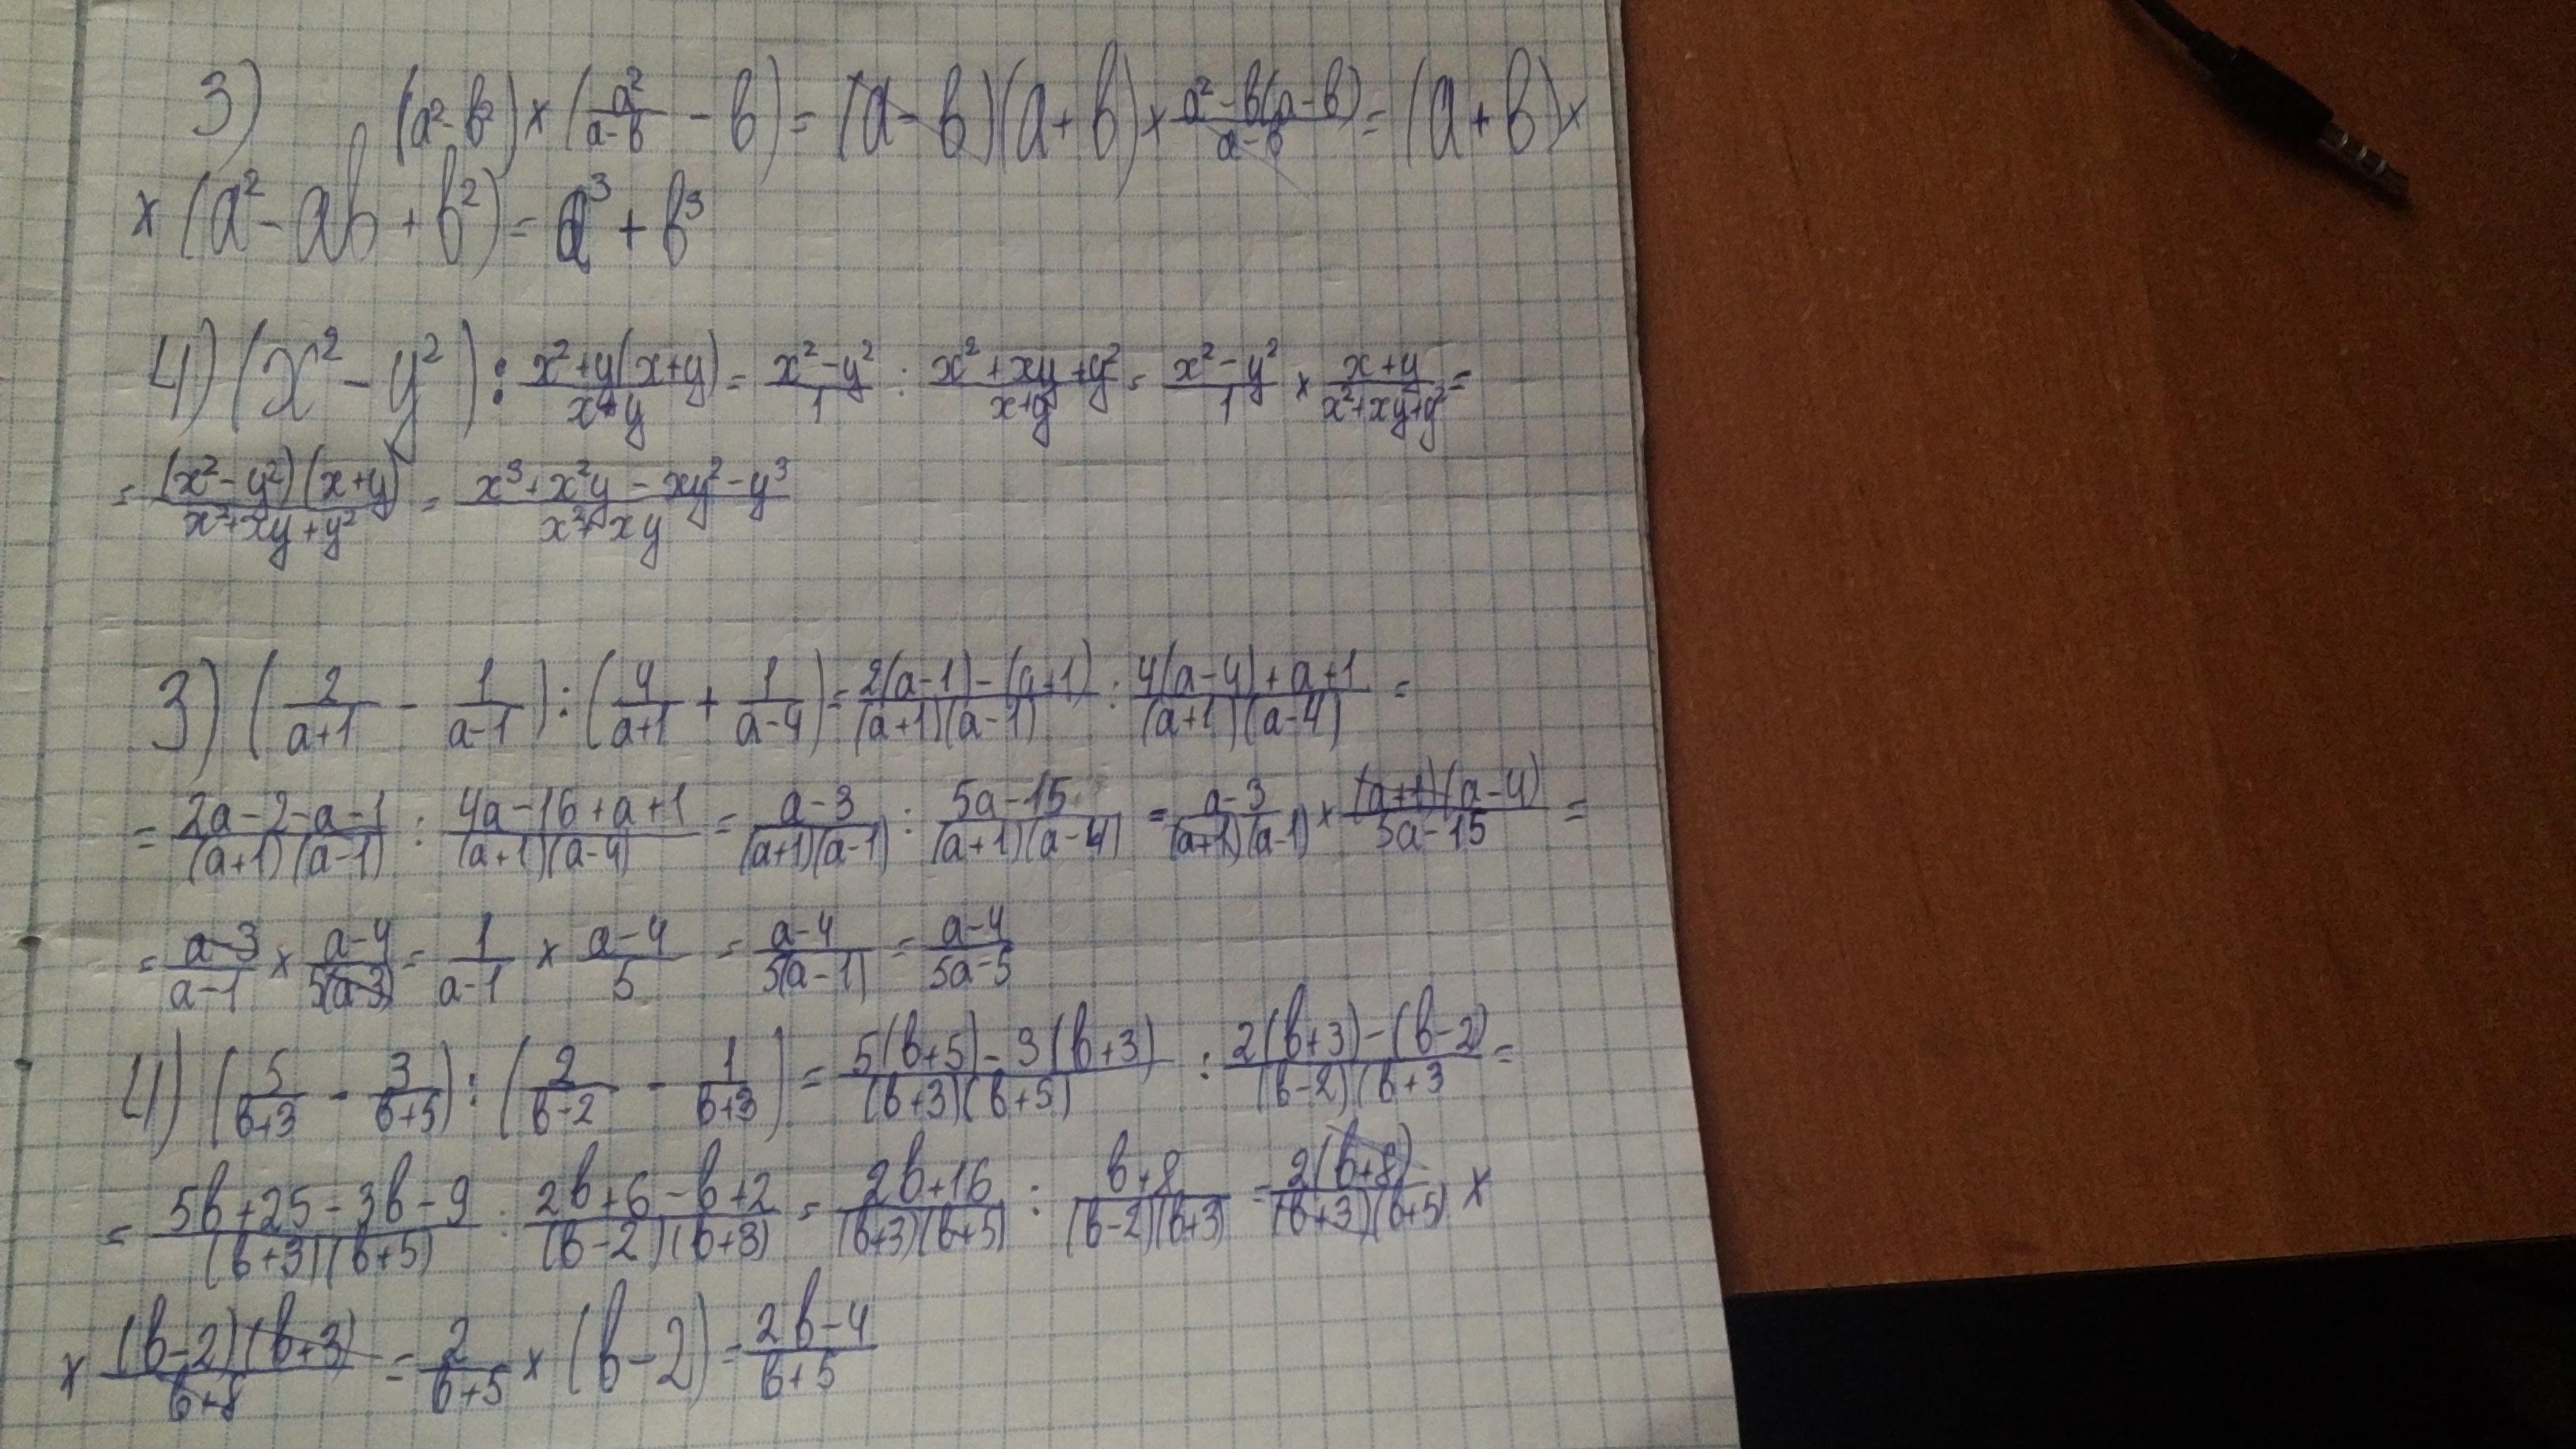 3) (a²-b²)×(a²/(a-b) - b) = (a-b)(a+b)×(a²-b(a-b))/(a-b) = (a+b)×
×(a²-ab+b²) = a³+b³
4) (x²-y²) : (x²+y(x+y))/(x+y) = (x²-y²)/1 : (x²+xy+y²)/(x+y) = (x²-y²)/1 × (x+y)/(x²+xy+y²) =
= ((x²-y²)(x+y))/(x²+xy+y²) = (x³+x²y-xy²-y³)/(x²+xy)
3) (2/(a+1) - 1/(a-1)) : (4/(a+1) + 1/(a-4)) = (2(a-1)-(a+1))/((a+1)(a-1)) : (4(a-4)+a+1)/((a+1)(a-4)) =
= (2a-2-a-1)/((a+1)(a-1)) : (4a-16+a+1)/((a+1)(a-4)) = (a-3)/((a+1)(a-1)) : (5a-15)/((a+1)(a-4)) = (a-3)/((a+1)(a-1)) × ((a+1)(a-4))/(5a-15) =
= (a-3)/(a-1) × (a-4)/(5(a-3)) = 1/(a-1) × (a-4)/5 = (a-4)/(5(a-1)) = (a-4)/(5a-5)
4) (5/(b+3) - 3/(b+5)) : (2/(b-2) - 1/(b+3)) = (5(b+5)-3(b+3))/((b+3)(b+5)) : (2(b+3)-(b-2))/((b-2)(b+3 =
= (5b+25-3b-9)/((b+3)(b+5)) : (2b+6-b+2)/((b-2)(b+3)) = (2b+16)/((b+3)(b+5)) : (b+8)/((b-2)(b+3)) = (2(b+8))/((b+3)(b+5)) ×
× ((b-2)(b+3))/(b+8) = 2/(b+5) × (b-2) = (2b-4)/(b+5)